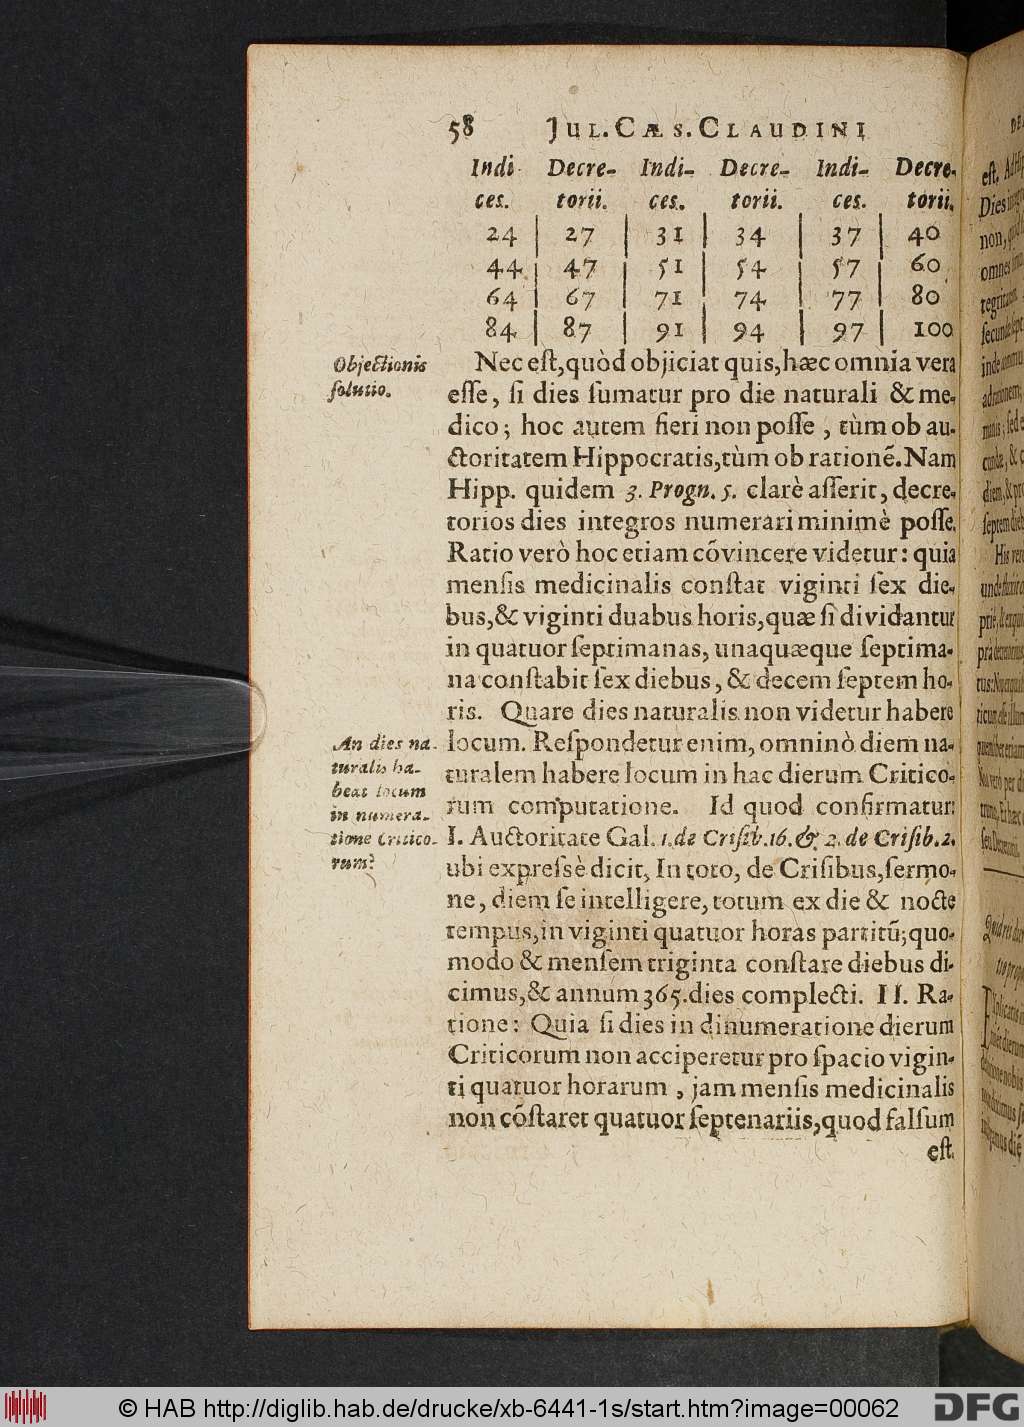 58 JUL. CÆS. CLAUDINI
Indi Decre- Indi- Decre- Indi- Decre-
ces. torii. ces. torii. ces. torii.
24 | 27 | 31 | 34 | 37 | 40
44 | 47 | 51 | 54 | 57 | 60
64 | 67 | 71 | 74 | 77 | 80
84 | 87 | 91 | 94 | 97 | 100
Objectionis
ſolutio.
Nec eſt, quòd objiciat quis, hæc omnia vera
eſſe, ſi dies ſumatur pro die naturali & me-
dico; hoc autem fieri non poſſe, tùm ob au-
ctoritatem Hippocratis, tùm ob rationẽ. Nam
Hipp. quidem 3. Progn. 5. clarè aſſerit, decre-
torios dies integros numerari minimè poſſe.
Ratio verò hoc etiam cõvincere videtur: quia
menſis medicinalis conſtat viginti ſex die-
bus, & viginti duabus horis, quæ ſi dividantur
in quatuor ſeptimanas, unaquæque ſeptima-
na conſtabit ſex diebus, & decem ſeptem ho-
ris. Quare dies naturalis non videtur habere
An dies na-
turalis ha-
beat locum
in numera-
tione Critico-
rum?
locum. Reſpondetur enim, omninò diem na-
turalem habere locum in hac dierum Critico-
rum computatione. Id quod confirmatur:
I. Auctoritate Gal. 1. de Criſib. 16. & 2. de Criſib. 2.
ubi expreſsè dicit, In toto, de Criſibus, ſermo-
ne, diem ſe intelligere, totum ex die & nocte
tempus, in viginti quatuor horas partitũ; quo-
modo & menſem triginta conſtare diebus di-
cimus, & annum 365. dies complecti. II. Ra-
tione: Quia ſi dies in dinumeratione dierum
Criticorum non acciperetur pro ſpacio vigin-
ti quatuor horarum, jam menſis medicinalis
non cõſtaret quatuor ſeptenariis, quod falſum
eſt.
© HAB http://diglib.hab.de/drucke/xb-6441-1s/start.htm?image=00062
DFG